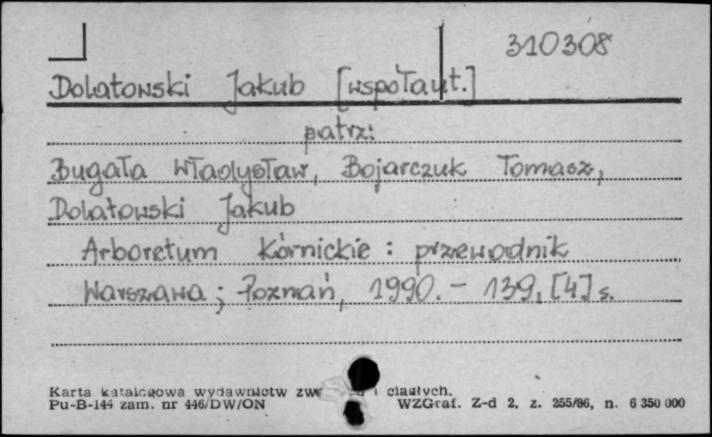 310308
Dolatowski Jakub [wspołaut.]
patrz:
Bugała Władysław, Bojarczuk Tomasz,
Dolatowski Jakub
Arboretum Kórnickie : przewodnik
Warszawa ; Poznań, 1990. - 139, [4] s.
Karta katalogowa wydawnictw ciągłych.
Pu-B-144 zam. nr 446/DW/ON WZGraf. Z-d 2, z. 255/86, n. 6 350 000